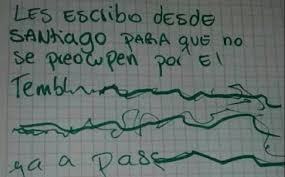 LES EScRibo DESDE
SANTiago PARA QUE no
se preocupen poR El
Tembl
ya a pasa